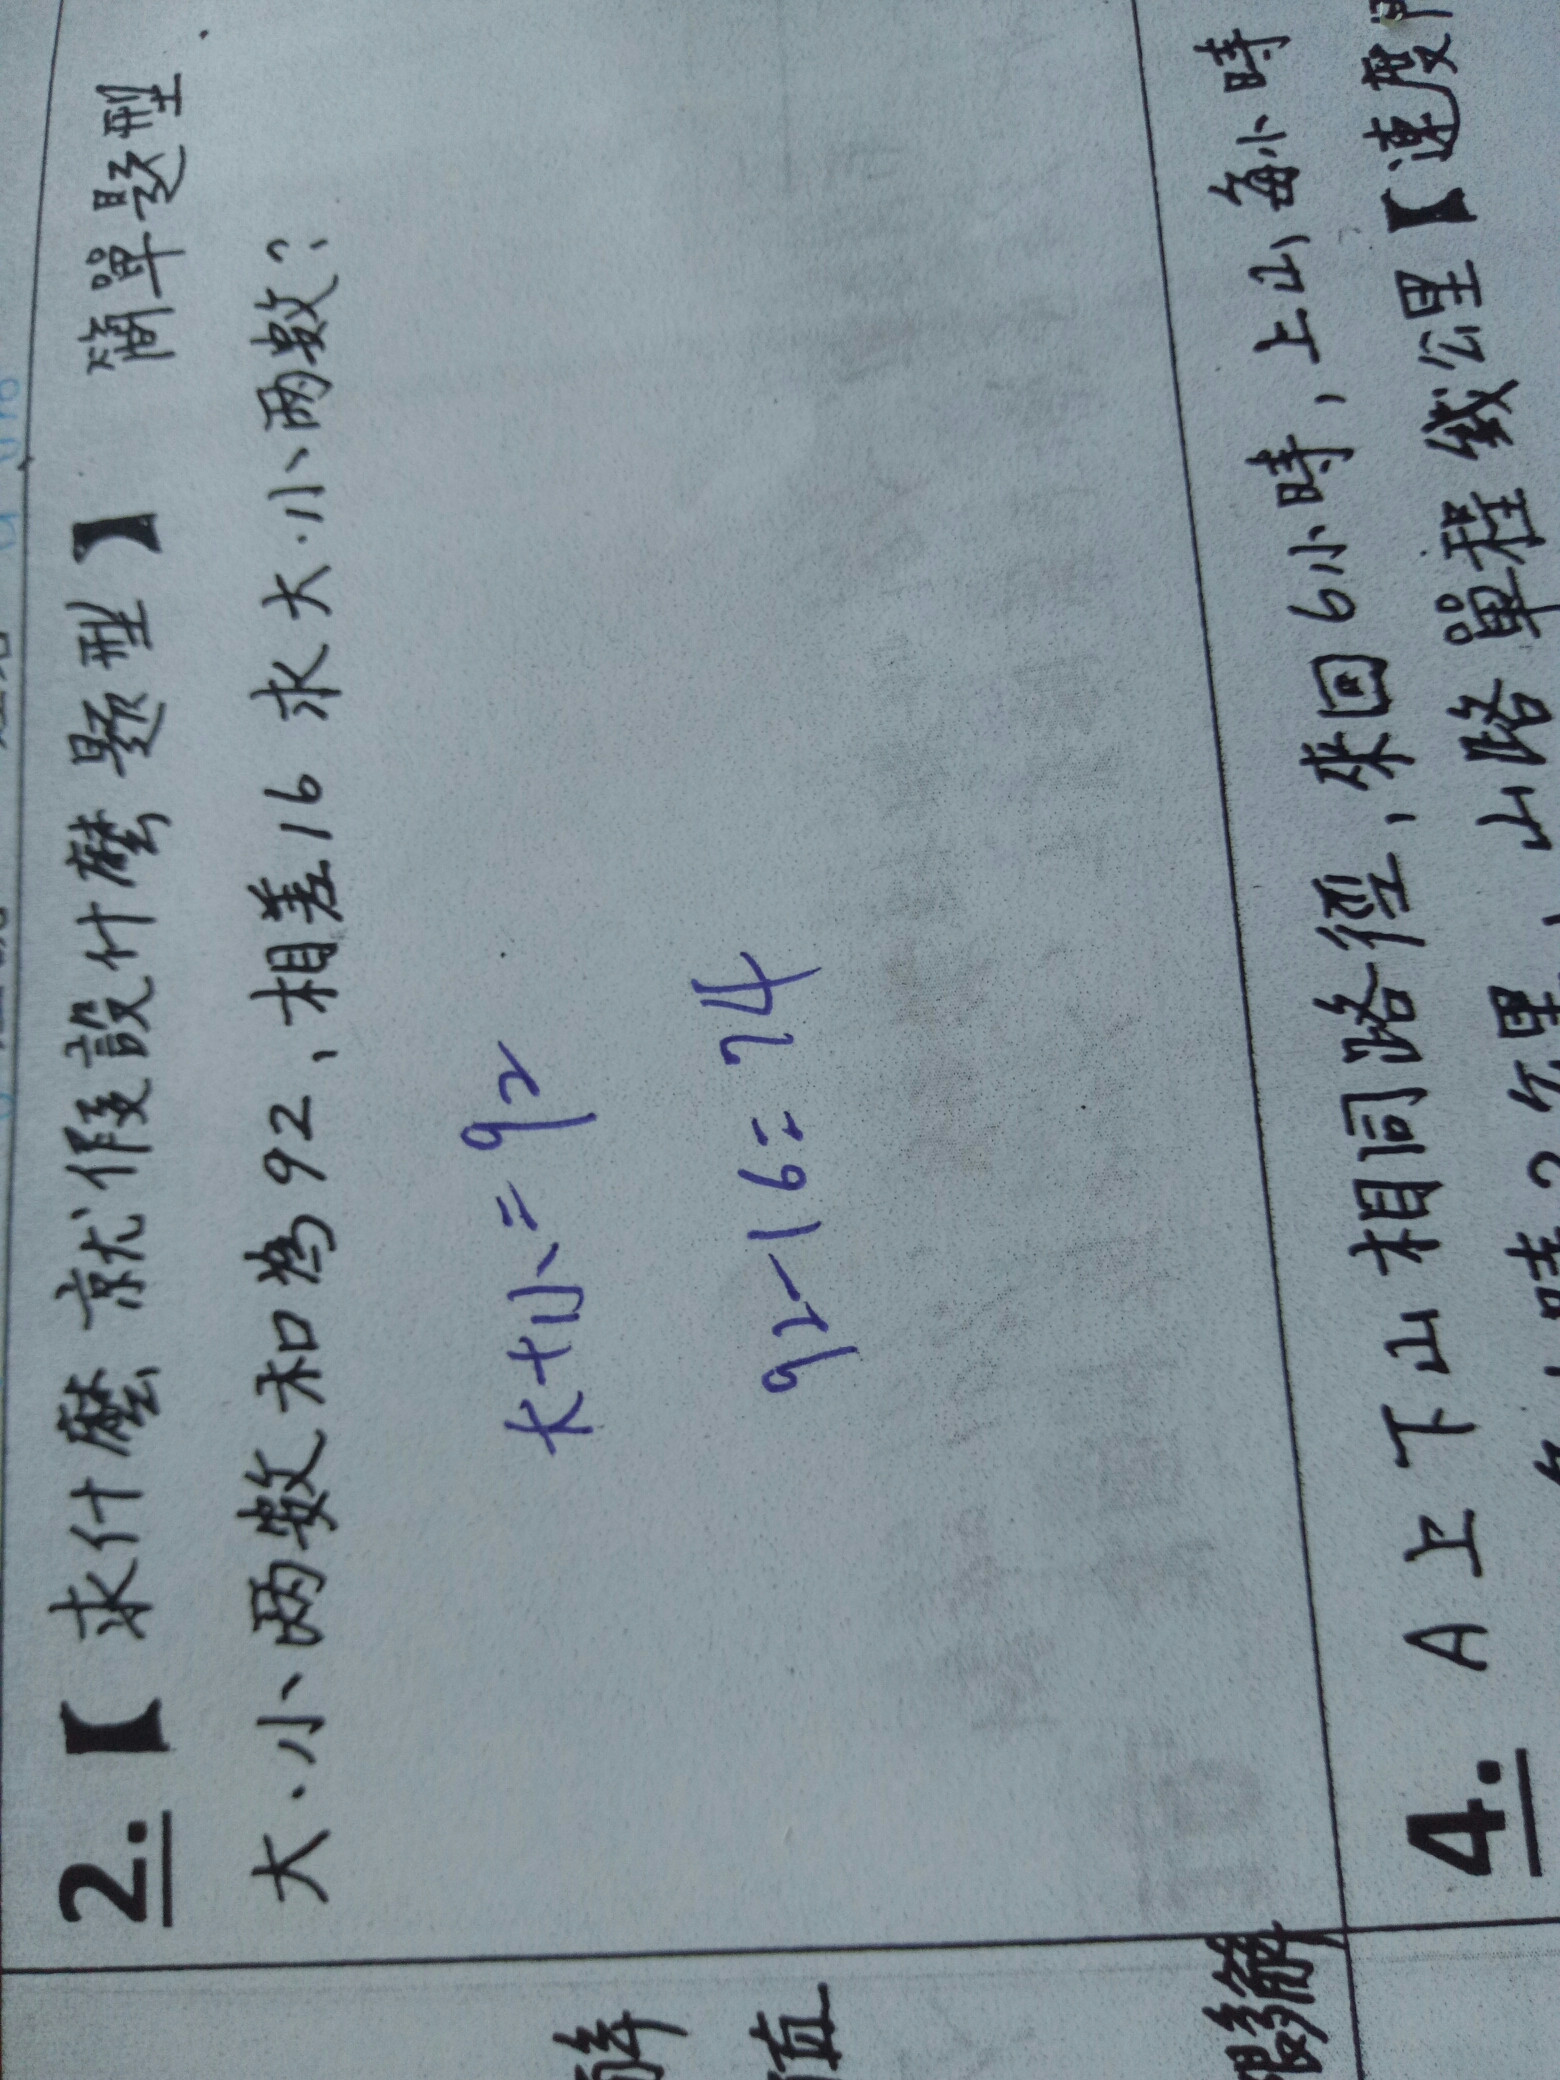 2.【求什麼就假設什麼題型】 簡單題型
大.小兩數和為92,相差16求大.小兩數?
大+小=92
92-16=74
4. A上下山相同路徑,來回6小時,上山每小時
山路單程幾公里【速度
解
值